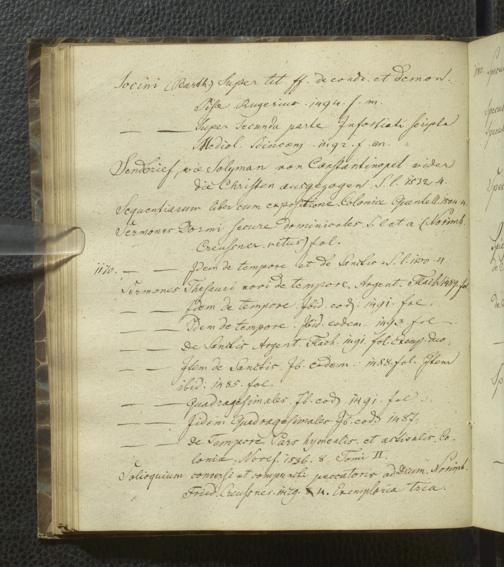 Socini (Barth) Super tit ff. de condi. et demon.
Pisæ Rugerius 1494. f. m.
— — Super Secunda parte Infortiati scripta
Mediol. Scinzenz. 1492. f. m.
Sendbrief, wie Solyman von Constantinopel wider
die Christen ausgezogen. S. l. 1532. 4.
Sequentiarum liber cum expositione. Coloniæ Quentell. 1504. 4.
Sermones Dormi secure dominicales S. l. et a. (Norimb.
Creussner. vetus) fol.
— — Idem de tempore et de Sanctis. S. l. 1500. 4.
Sermones Thesauri novi de tempore. Argent. Flach. 1489. fol
— — Idem de tempore. Ibid. eod. 1491. fol.
— — Idem de tempore. Ibid. eodem. 1493. fol
— — de Sanctis Argent. Flach. 1491. fol. Exemp. duo.
— — Item de Sanctis. Ib. eodem. 1488. fol. Item
ibid. 1485. fol.
— — Quadragesimales. Ib. eod. 1491. fol.
— — Iidem Quadragesimales. Ib. eod. 1487.
— — de Tempore. Pars hyemalis. et æstivalis. Co-
lonia. Noves. 1536. 8. Tomi II.
Soliloquium conversi et compuncti peccatoris ad Deum. Norimb.
Frid. Creussner. 1479. 4. Exemplaria tria.